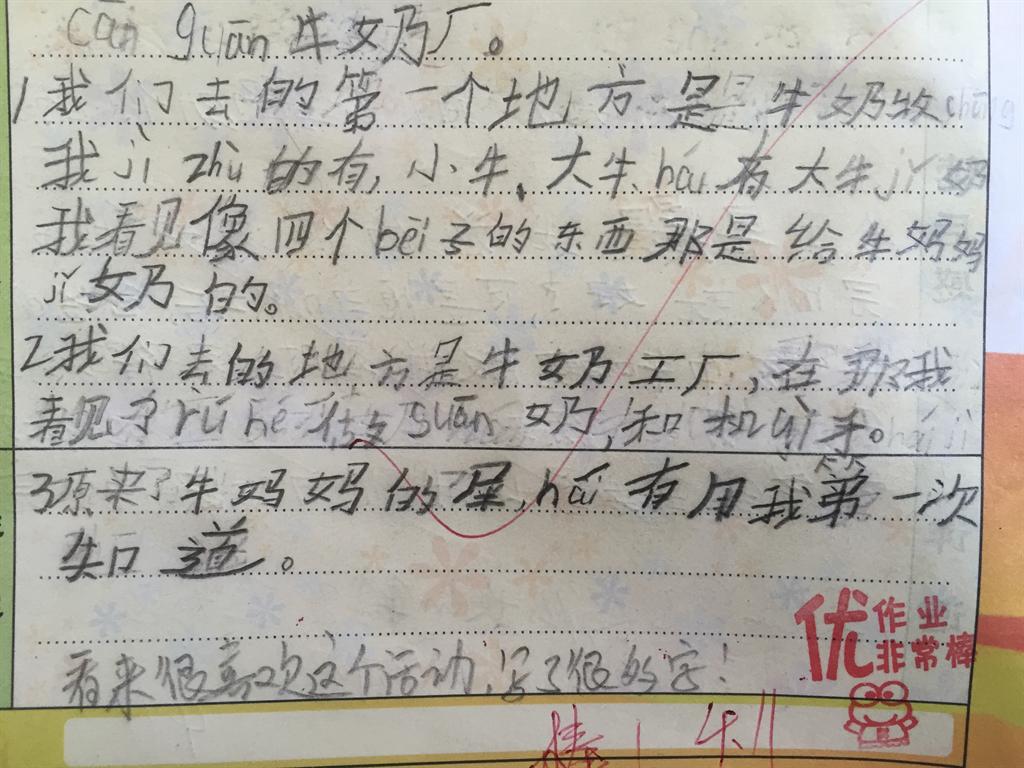 cān guān 牛奶厂。
1我们去的第一个地方是牛奶牧chǎng
我jì zhù的有,小牛、大牛hái有大牛jǐ奶
我看见像四个bēi子的东西那是给牛妈妈
jǐ奶的。
2我们去的地方是牛奶工厂,在那我
看见了rú hé guān奶,和机qì手。
3原来了牛妈妈的屎,hái有用我第一次
知道。
看来很喜欢这个活动,写了很的字!
优作业
非常棒
棒!